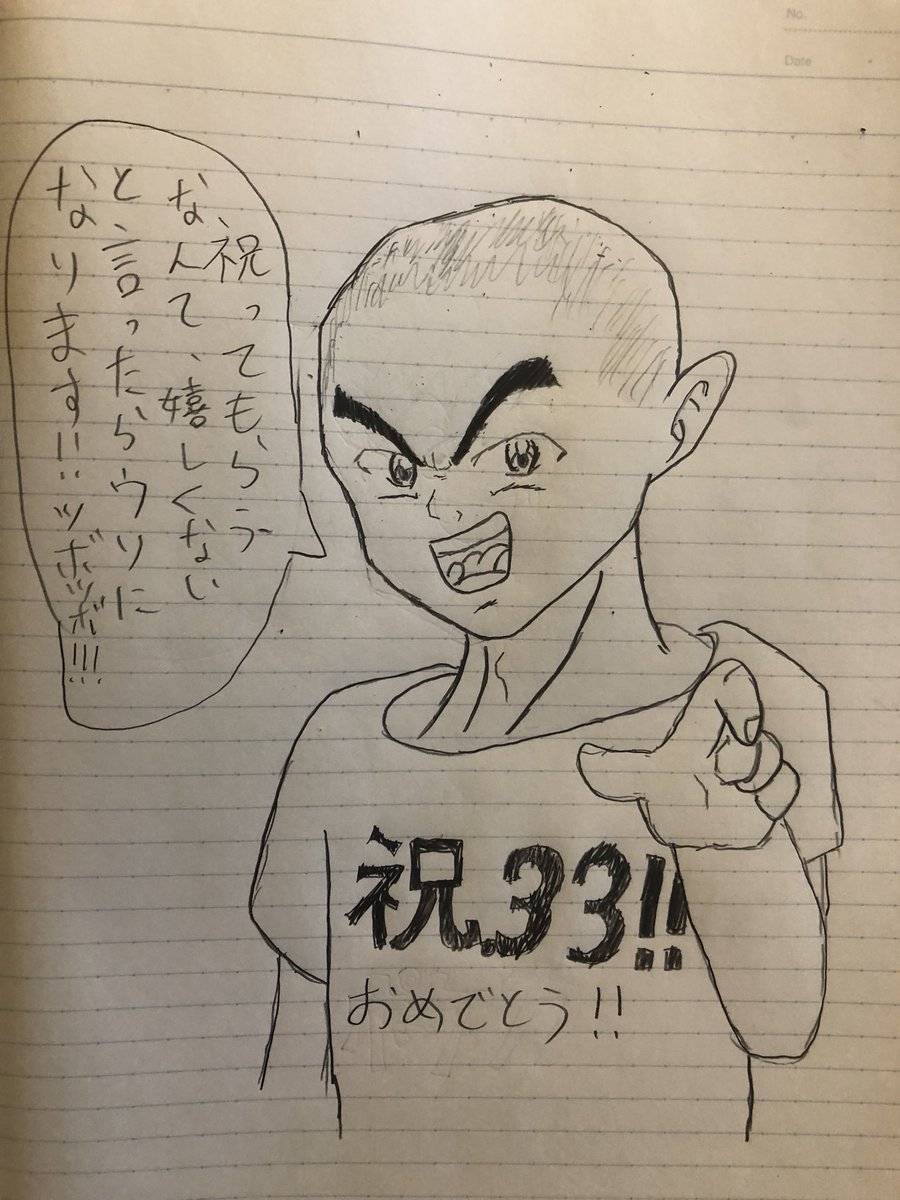 No.
Date
祝ってもらう
なんて、嬉しくない
と言ったらウソに
なります!!ッボッボ!!!
祝.33!!
おめでとう!!